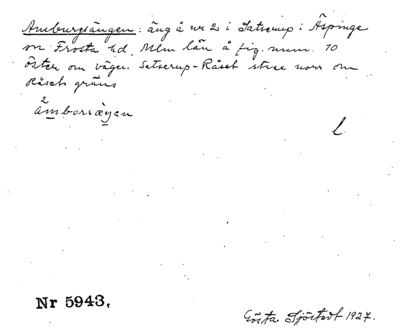 Amburgsängen: äng å nr 2 i Satserup i Äspinge
sn Frosta hd, Mlm län å fig. num. 10
öster om vägen Satserup-Råset strax norr om
Råsets gräns
L
Nr 5943.
Gösta Sjöstedt 1927.